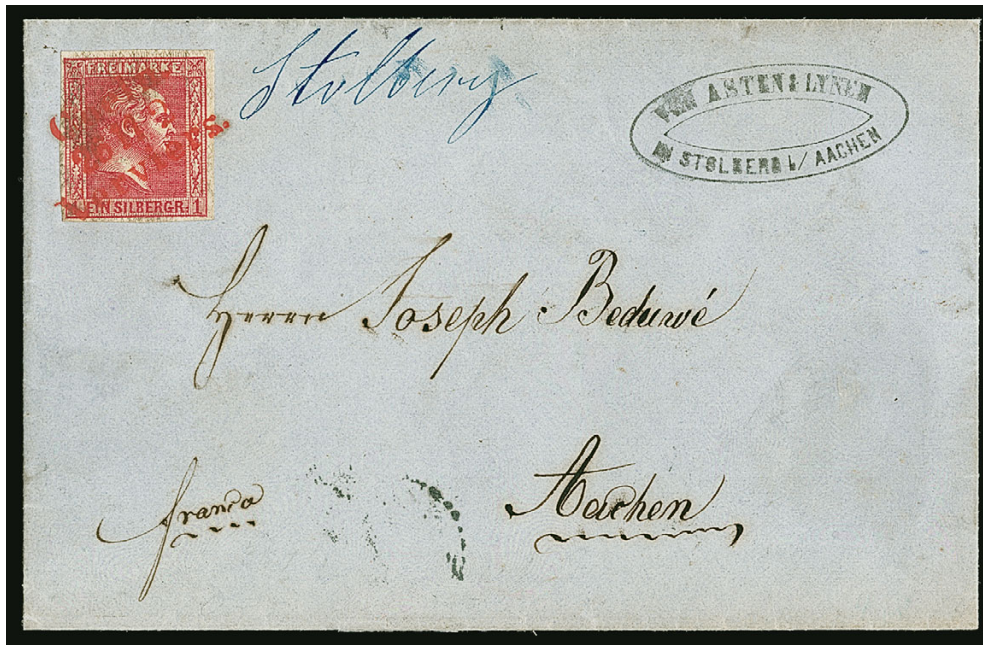 FREIMARKE
1 EIN SILBERGR. 1
Stolberg
VON ASTEN & LYNEN
IN STOLBERG b/ AACHEN
Herrn Joseph Beduwé
Aachen
franco